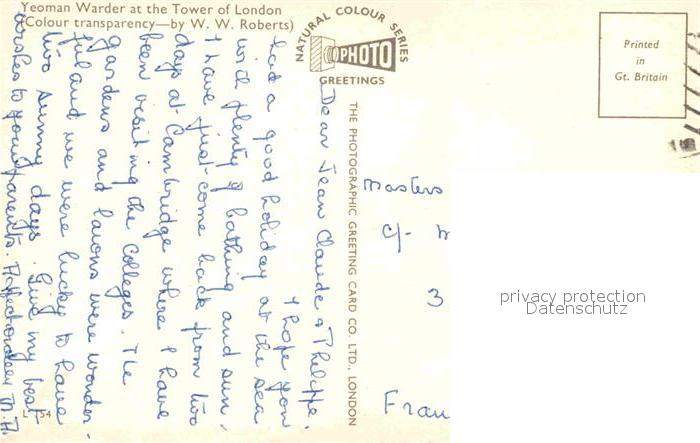 Yeoman Warder at the Tower of London
(Colour transparency—by W. W. Roberts)
NATURAL COLOUR SERIES
PHOTO
GREETINGS
Printed
in
Gt. Britain
THE PHOTOGRAPHIC GREETING CARD CO. LTD., LONDON
Dear Jean Claude & Philippe,
I hope you
had a good holiday at the sea
with plenty of bathing and sun.
I have just come back from two
days at Cambridge where I have
been visiting the Colleges. The
gardens and lawns were wonder-
ful and we were lucky to have
two sunny days. Give my best
wishes to your parents. Affectionately M.H.
L 154
Masters
c/-
3
Fran
privacy protection
Datenschutz